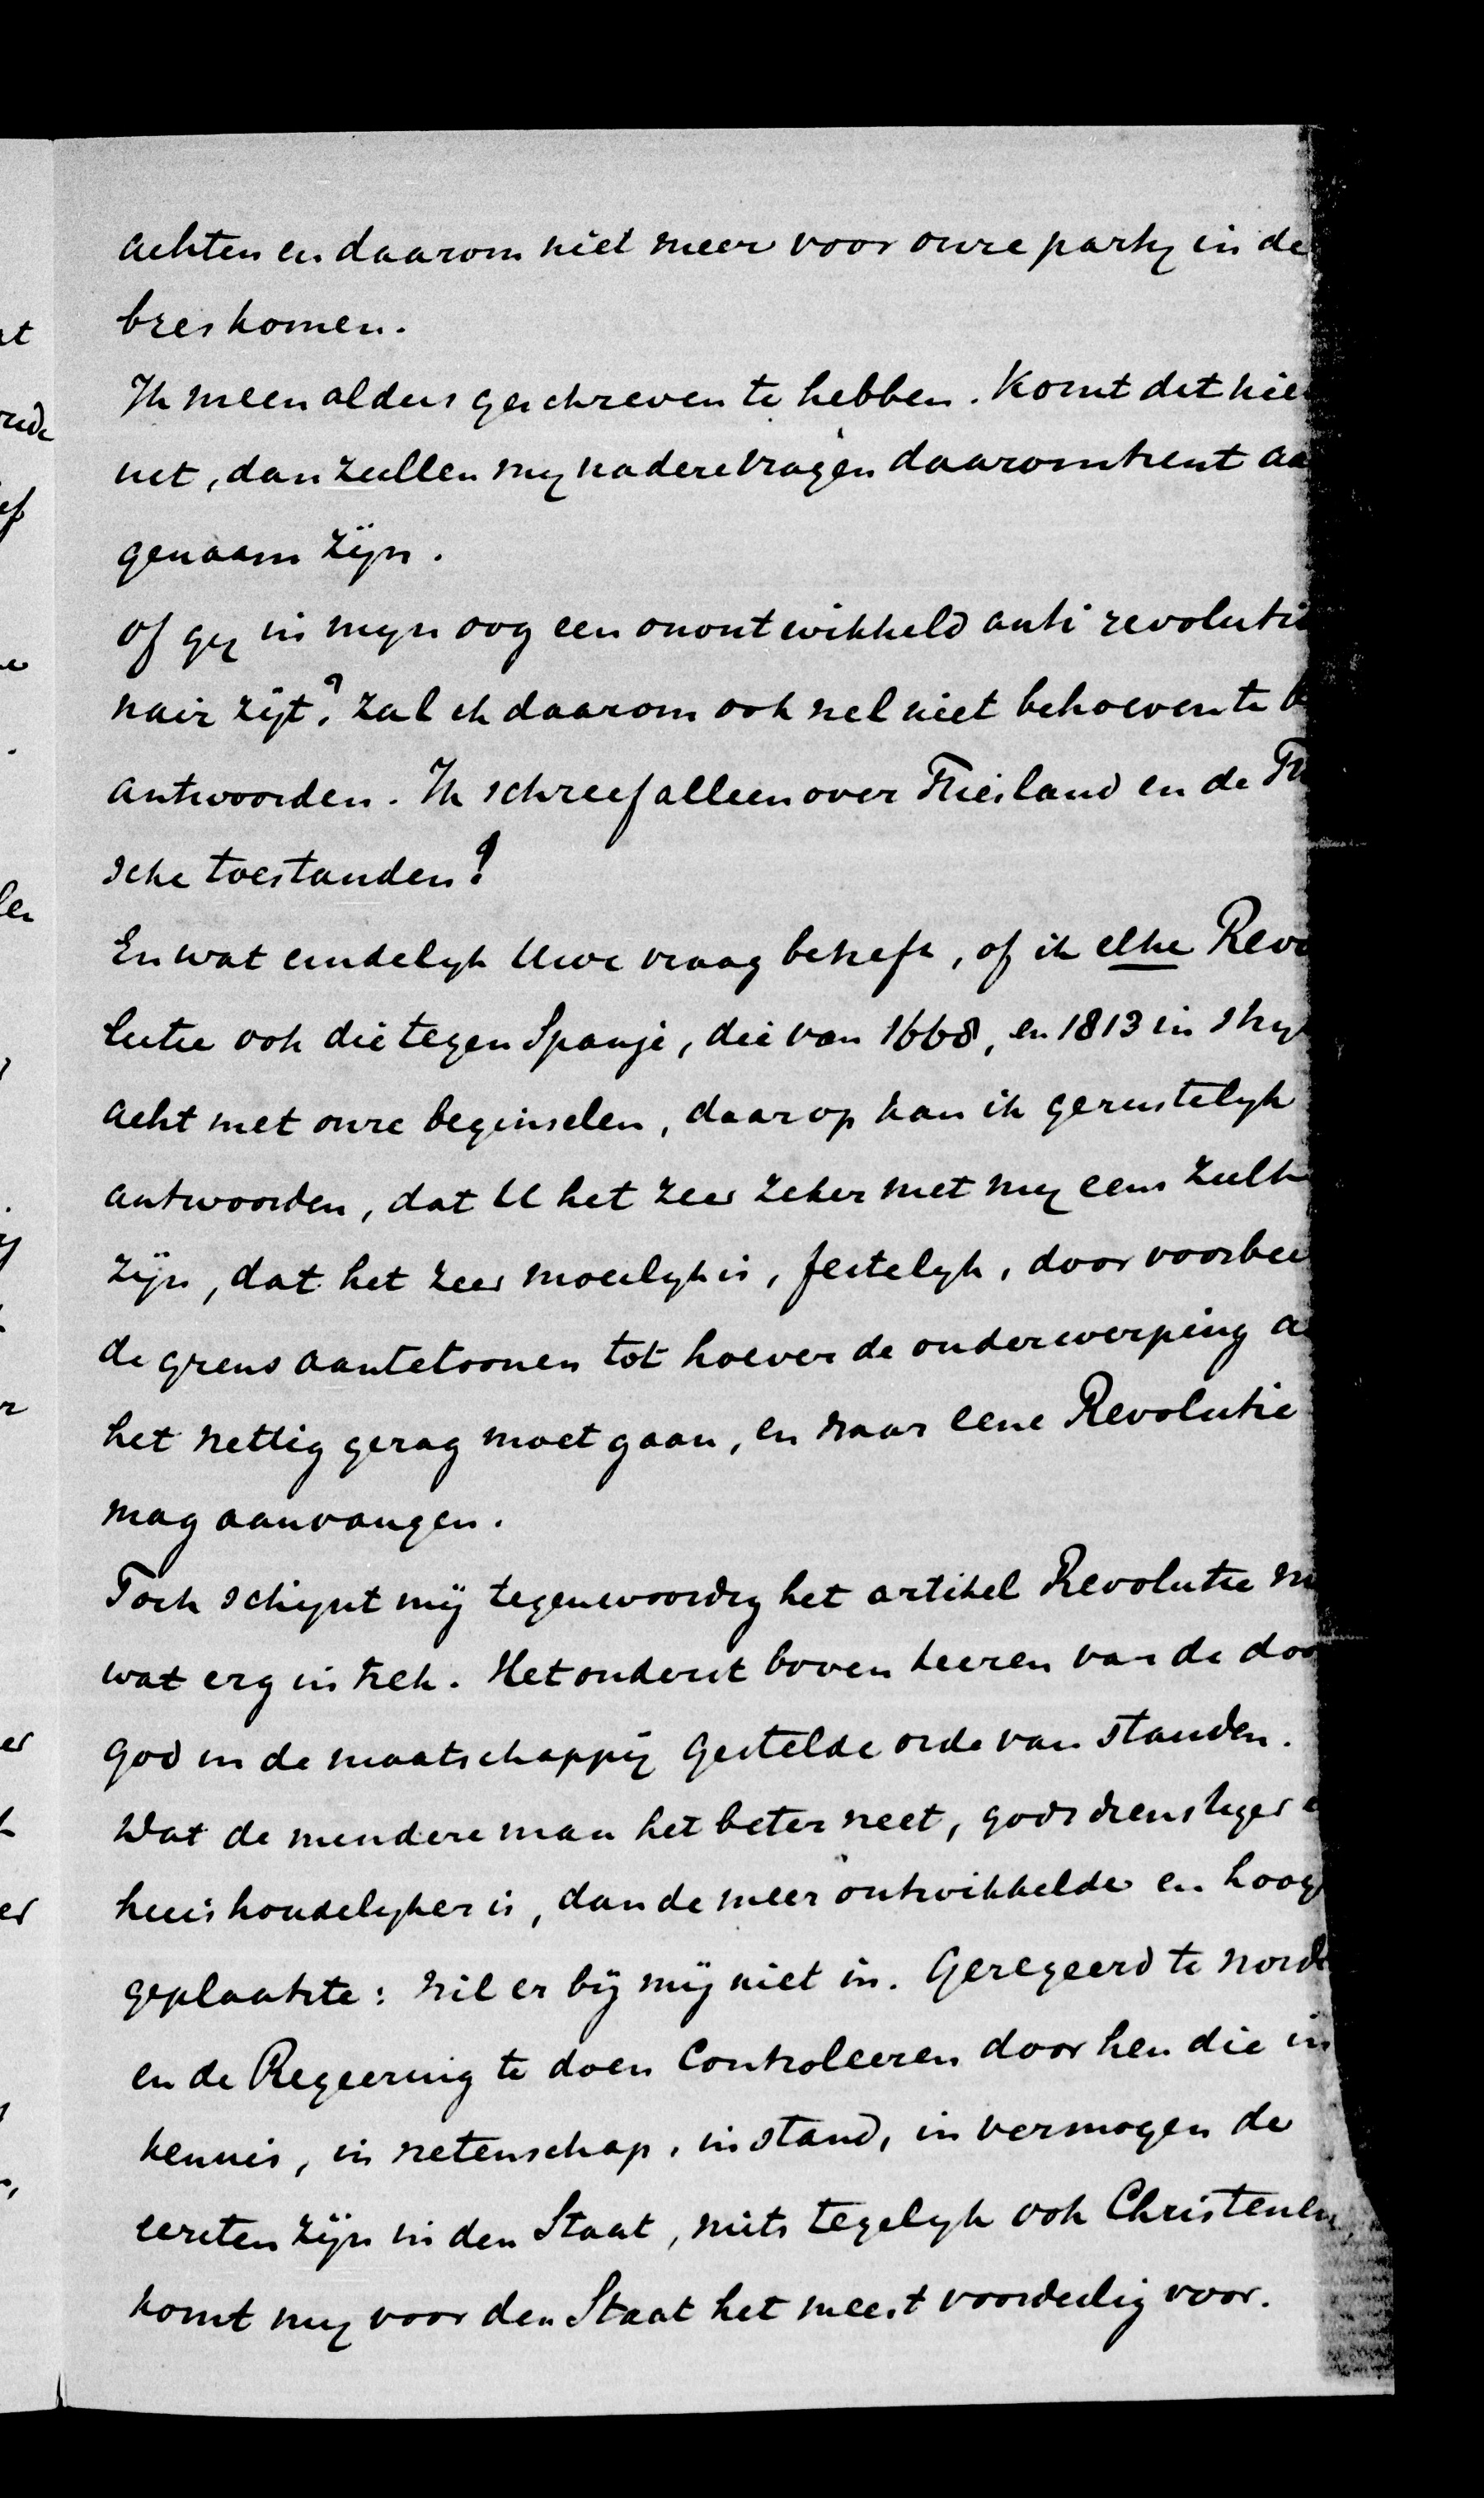 achten en daarom niet meer voor onze party in de
bres komen.
Ik meen aldus geschreven te hebben. Komt dit hie
uit, dan zullen my nadere vragen daaromtrent aa
genaam zijn.
of gy in myn oog een onontwikkeld anti revolutio
nair zijt? zal ik daarom ook wel niet behoeven te b
antwoorden. Ik schreef alleen over Friesland en de Fr
sche toestanden!
En wat eindelyk Uwe vraag betreft, of ik elke Revo
lutie ook die tegen Spanje, die van 1668, en 1813 in stry
acht met onze beginselen, daarop kan ik gerustelyk
antwoorden, dat U het zeer zeker met my eens zult
zijn, dat het zeer moeilyk is, feitelyk, door voorbee
de grens aantetoonen tot hoever de onderwerping a
het wettig gezag moet gaan, en waar eene Revolutie
mag aanvangen.
Toch schijnt mij tegenwoordig het artikel Revolutie
wat erg in trek. Het onderst boven keeren van de doo
God in de maatschappij gestelde orde van standen.
Dat de mindere man het beter weet, godsdienstiger
huishoudelyker is, dan de meer ontwikkelde en hoog
geplaatste: wil er bij mij niet in. Geregeerd te word
en de Regeering te doen Controleeren door hen die in
kennis, in wetenschap, in stand, in vermogen de
eersten zijn in den Staat, mits tegelyk ook Christenen
komt my voor den Staat het meest voordeelig voor.